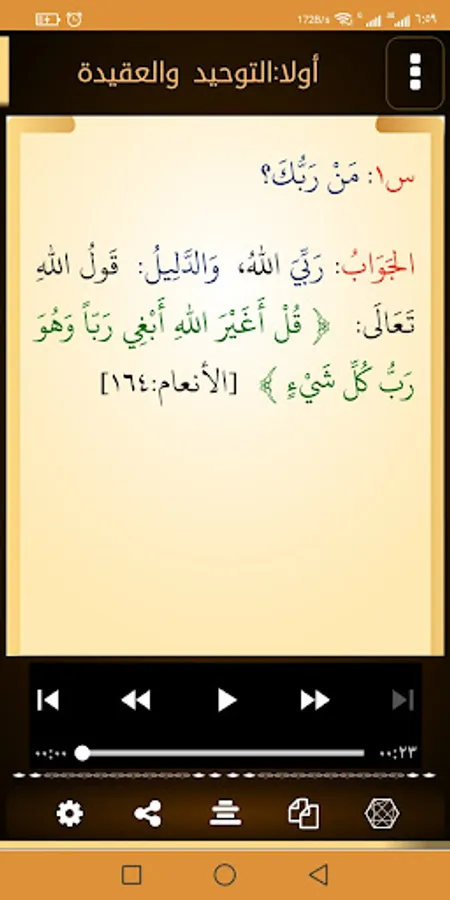 1728/s ٦:٥٩
أولا:التوحيد والعقيدة
س١: مَنْ رَبُّكَ؟
الجَوَابُ: رَبِّيَ اللهُ، وَالدَّلِيلُ: قَولُ اللهِ
تَعَالَى: ﴿ قُلْ أَغَيْرَ اللهِ أَبْغِي رَبَاً وَهُوَ
رَبُّ كُلِّ شَيْءٍ ﴾ [الأنعام:١٦٤]
٠٠:٠٠ ٠٠:٢٣